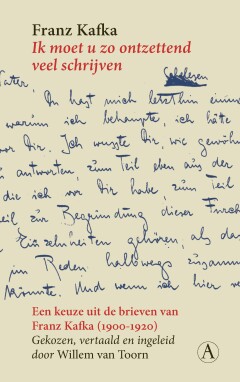 Franz Kafka
Ik moet u zo ontzettend
veel schrijven
Schelesen
Vater,
Du hast mich letzthin einma
warum ich behaupte, ich häte
Dir. Ich wusste Dir, wie gewöhn
zu antworten, zum Teil eben aus der
die ich vor Dir habe, zum Teil
eil zur Begründung dieser Furch
Einzelnheiten gehören, als da
im Reden halbwegs zusamm
könnte. Und wenn ich hier ve
Een keuze uit de brieven van
Franz Kafka (1900-1920)
Gekozen, vertaald en ingeleid
door Willem van Toorn
A